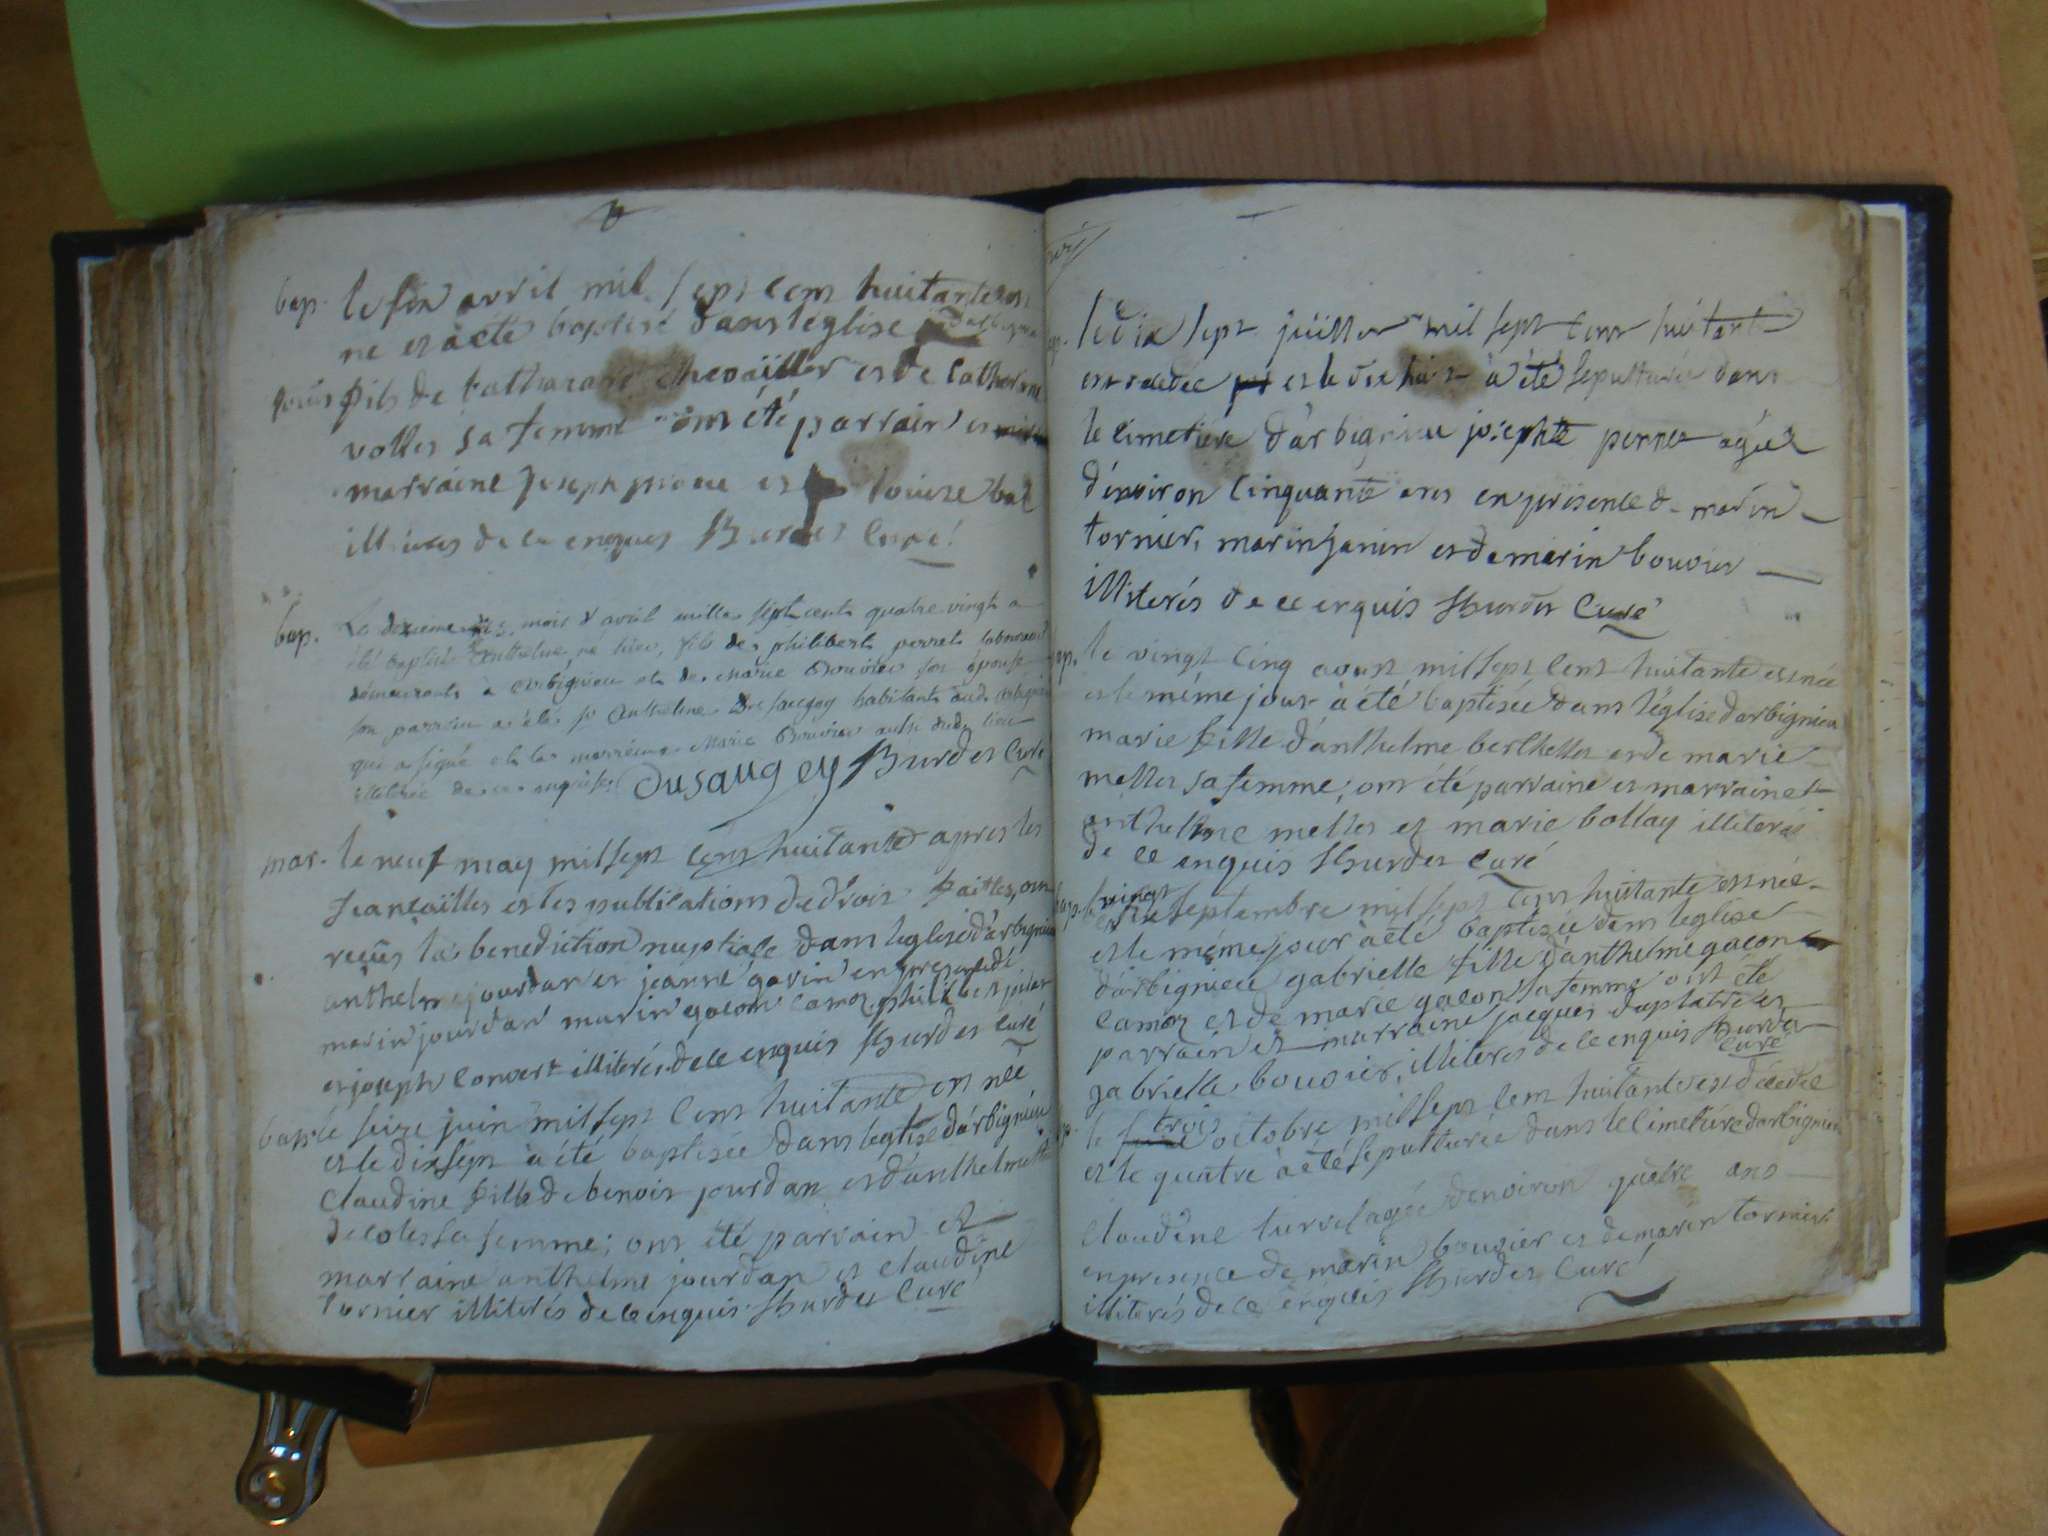 bap. le six avril mil sept cent huitante est
né et a été baptisé dans l'église
louis fils de chevaillier et de catherine
volles sa femme ont été parrain et
marraine joseph et louise
illiterés de ce enquis Burdet Curé
bap. Le mois d'avril mille sept cents quatre vingt a
été baptisé Anthelme né hier, fils de philibert perret laboureur
demeurant à Arbignieu et de Marie Bouvier son épouse
son parrein a été Sr Anthelme Dusaugey habitant
qui a signé et la marreine Marie Bouvier aussi dudit lieu
illiterée de ce enquise Dusaugey Burdet Curé
mar. le neuf may mil sept cent huitante apres les
fiancailles et les publications de droit faittes, ont
reçus la benediction nuptiale dans leglise d'arbignieu
anthelme jourdan et jeanne gavin en presence de
marin jourdan marin gacon camoz, philibert
et joseph convert illiterés de ce enquis Burdet Curé
bap. le seize juin mil sept cent huitante est née
et le dix sept a été baptisée dans leglise d'arbignieu
claudine fille de benoit jourdan et d'anthelmette
decoles sa femme; ont été parrain et
marraine anthelme jourdan et claudine
tornier illiterés de ce enquis Burdet Curé
le dix sept juillet mil sept cent huitante
est decedée et le dix huit a été sepulturée dans
le cimetiere d'arbignieu josephte perret agée
d'environ cinquante ans en presence de marin
tornier, marin janin et de marin bouvier
illiterés de ce enquis Burdet Curé
bap. le vingt cinq aoust mil sept cent huitante est née
et le même jour a été baptisée dans l'église d'arbignieu
marie fille d'anthelme berthelet et de marie
mettes sa femme; ont été parraine et marraine
anthelme mettes et marie bollay illiterés
de ce enquis Burdet curé
bap. le vingt
septembre mil sept cent huitante est née
et le même jour a été baptisée dans leglise
d'arbignieu gabrielle fille d'anthelme gacon
camoz et de marie gacon sa femme ont été
parrain et marraine jacques duplatre et
gabrielle bouvier, illiterés de ce enquis Burdet
curé
le trois octobre mil sept cent huitante est décédée
et le quatre a été sepulturée dans le cimetiére d'arbignieu
claudine agée d'environ quatre ans
en presence de marin bouvier et de marin tornier
illiterés de ce enquis Burdet Curé